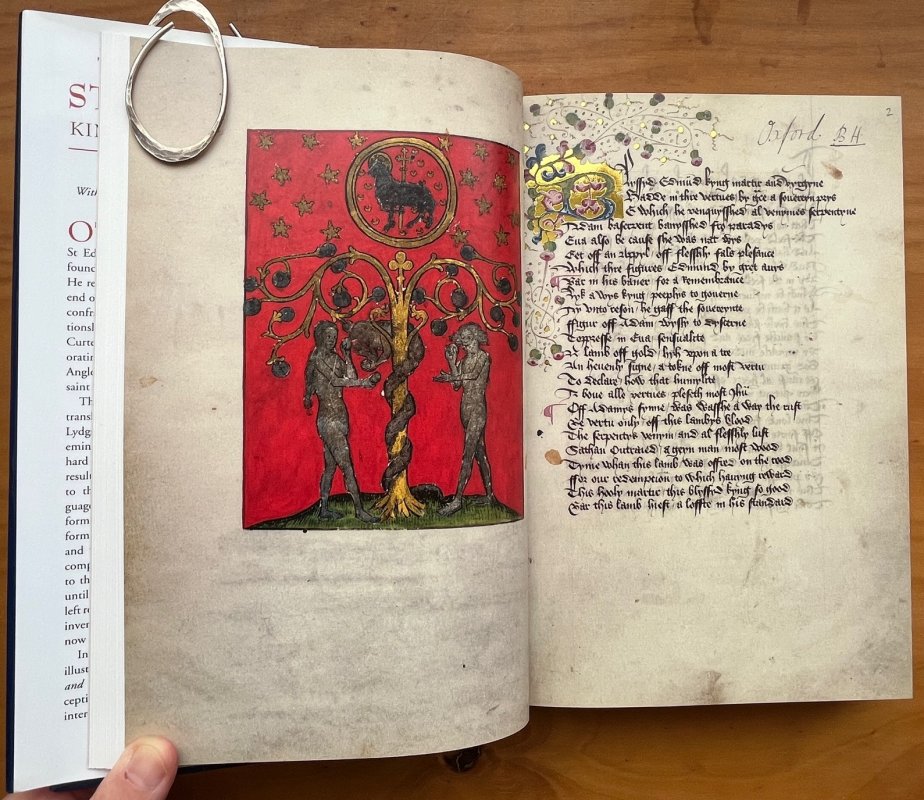 ST
KIN
With
O
St Ed
found
He re
end o
confr
tionsl
Curte
oratin
Angle
saint
Th
transl
Lydg
emin
hard
result
to th
guage
form
form
and
comp
to th
until
left re
inven
now
In
illust
and
cepti
inter
Oxford. BH
2
Blyssyd Edmūd kyng martir and vyrgyne
Hadde in thre vertues by gce a souereyn prys
Be Which he venquysshed al venymes serpentyne
Adam baserpent banysshed fro paradys
Eua also be cause she was nat wys
Eet off an appyl off flesshly fals plesance
Which thre figures Edmund by gret auys
Bar in his baner for a remembrance
Lyk a wys kyng peeplys to gouerne
Ay vnto reson he gaff the souereynte
ffigur off Adam wysly to dyscerne
Toppresse in Eua sensualite
A lamb off gold hyh vpon a tre
An heuenly signe a tokne off most vertu
To declare how that humylite
A boue alle vertues pleseth most Jhū
Off Adamys synne was wasshe a way the rust
Be vertu only off this lambys blood
The serpentys venym and al flesshly lust
Sathan Outraied a geyn man most wood
Tyme whan this lamb was offred on the rood
ffor our redempcion to which hauyng reward
This Hooly martir this blyssyd kyng so good
Bar this lamb hiest a loffte in his standard